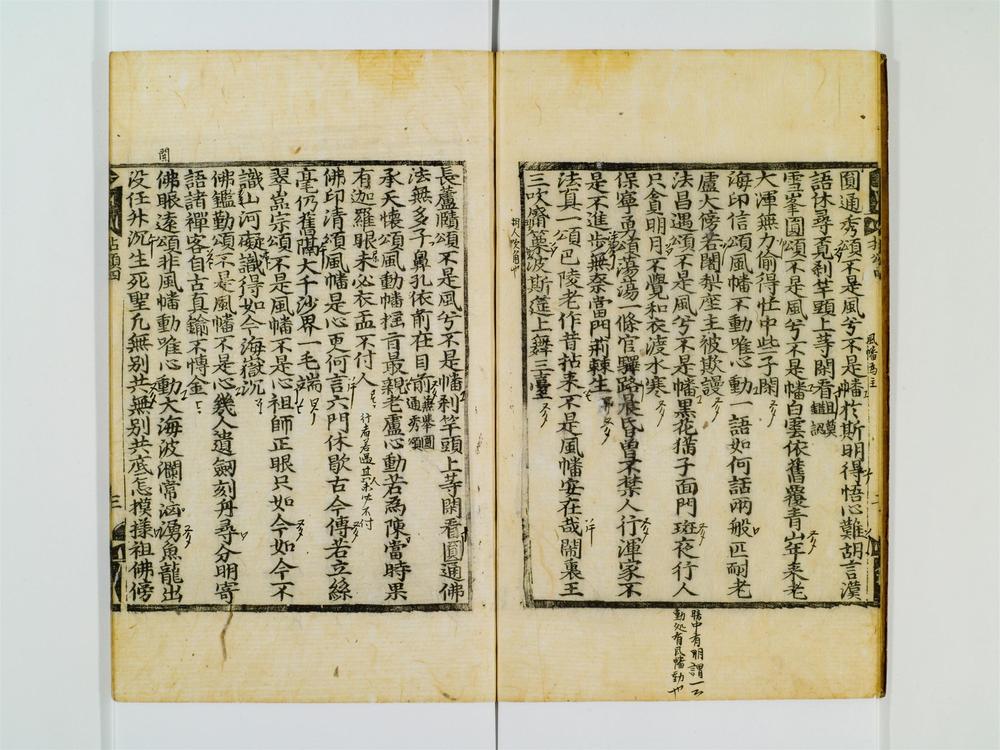 圓通秀頌不是風兮不是幡於斯明得悟心難胡言漢
語休尋覓刹竿頭上等閑看
雪峯圓頌不是風兮不是幡白雲依舊覆青山年来老
大渾無力偷得忙中些子閑
海印信頌風幡不動唯心動一語如何話兩般叵耐老
盧大傍若闍梨座主被欺謾
法昌遇頌不是風兮不是幡黒花猫子面門斑夜行人
只貪明月不覺和衣渡水寒
保寧勇頌蕩蕩一條官驛路晨昏曾不禁人行渾家不
是不進步無柰當門荊棘生
法真一頌巴陵老作昔拈来不是風幡安在哉鬧裏王
三吹觱篥波斯莚上舞三臺
風幡為主
胡人吹角也
動処有風幡動也
長蘆賾頌不是風兮不是幡刹竿頭上等閑看圓通佛
法無多子鼻孔依前在目前
承天懷頌風動幡揺言最親老盧心動若為陳當時果
有迦羅眼未必衣盂不付人
佛印清頌風幡是心更何言六門休歇古今傳若立絲
毫仍舊隔大千沙界一毛端
翠嵓宗頌不是風幡不是心祖師正眼只如今如今不
識山河礙識得如今海嶽沉
佛鑑勤頌不是風幡不是心幾人遺劒刻舟尋分明寄
語諸禪客自古真鍮不愽金
佛眼遠頌非風幡動唯心動大海波瀾常洶湧魚龍出
没任升沉生死聖凡無别共無别共底怎模樣祖佛傍
三